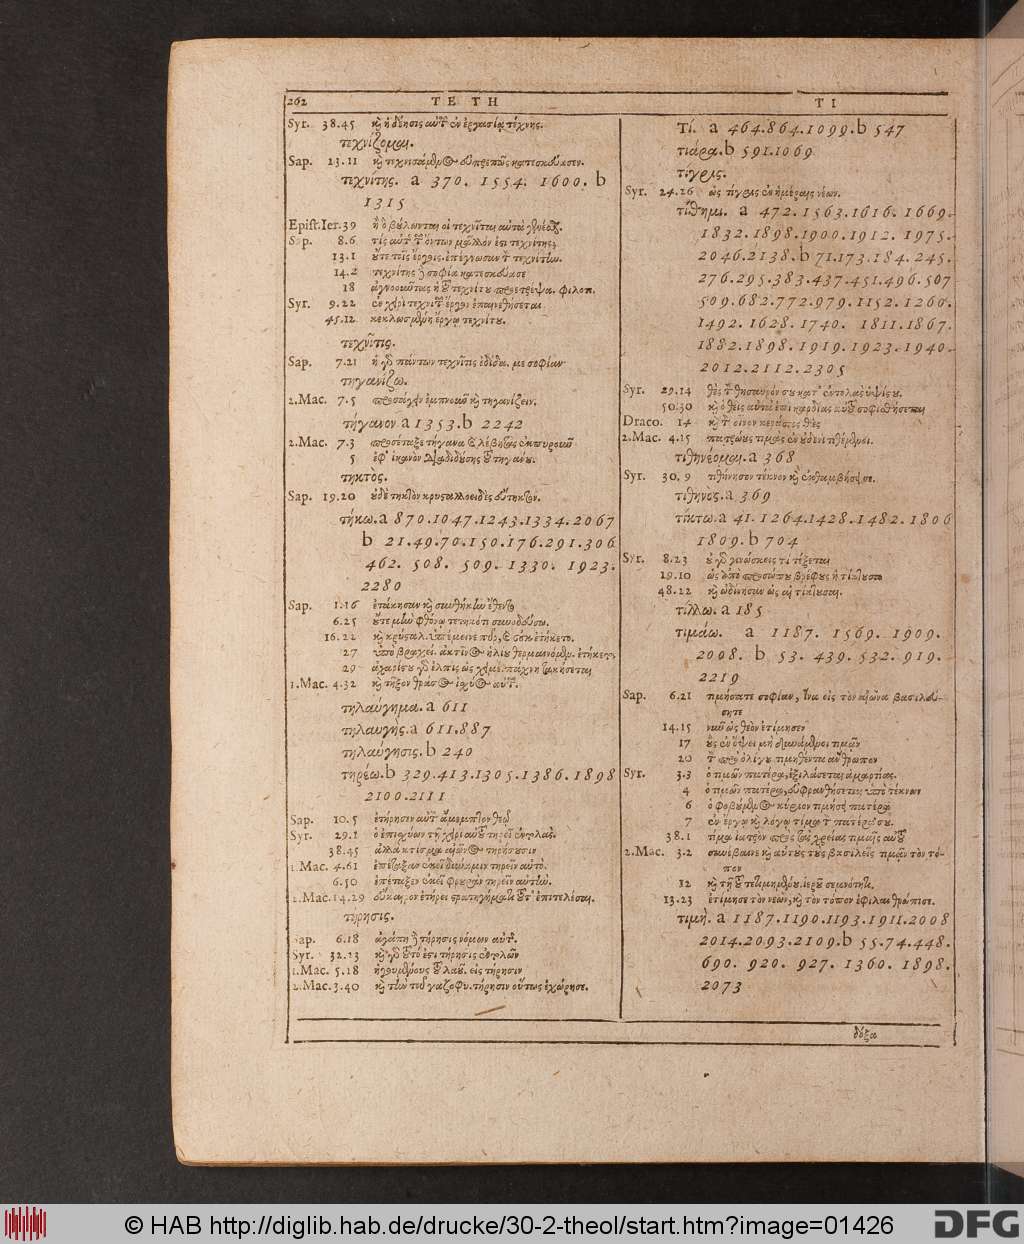 262 ΤΕ ΤΗ ΤΙ
Syr. 38.45 καὶ ἡ δέησις αὐτῶν ἐν ἐργασίᾳ τέχνης.
τεχνίζομαι.
Sap. 13.11 καὶ τεχνησάμενος εὐπρεπῶς κατεσκεύασεν.
τεχνίτης. a 370. 1554. 1600. b
1315
Epist. Ier. 39
Sap. 8.6 τίς αὐτῆς τῶν ὄντων μᾶλλόν ἐστι τεχνίτης;
13.1 οὔτε τοῖς ἔργοις ἐπέγνωσαν τὸν τεχνίτην.
14.2 τεχνίτης δὲ σοφία κατεσκεύασε
18 ἀγνοοῦντας ἡ τοῦ τεχνίτου προετρέψα. φιλοτ.
Syr. 9.22 ἐν χειρὶ τεχνιτῶν ἔργον ἐπαινεθήσεται
45.12 κεκλωσμένη ἔργῳ τεχνίτου.
τεχνῖτις.
Sap. 7.21 ἡ γὰρ πάντων τεχνῖτις ἐδίδα. με σοφία
τηγανίζω.
2.Mac. 7.5 προσάγειν ἔμπνουν καὶ τηγανίζειν.
τήγανον a 1353. b 2242
2.Mac. 7.3 προσέταξε τήγανα καὶ λέβητας ἐκπυροῦν
5 ἐφ' ἱκανὸν διαδιδούσης τοῦ τηγάνου.
τηκτὸς.
Sap. 19.20 οὐδὲ τηκτὸν κρυσταλλοειδὲς εὔτηκτον.
τήκω. a 870. 1047. 1243. 1334. 2067
b 21. 49. 70. 150. 176. 291. 306
462. 508. 509. 1330. 1923.
2280
Sap. 1.16 ἐτάκησαν καὶ συνθήκην ἔθεντο
6.25 οὔτε μὴν φθόνῳ τετηκότι συνοδεύσω.
16.22 καὶ κρύσταλ. ὑπέμεινε πῦρ, καὶ οὐκ ἐτήκετο.
27 ὑπὸ βραχεί. ἀκτῖνος ἡλίου θερμαινόμεν. ἐτήκετο.
29 ἀχαρίστου γὰρ ἐλπὶς ὡς χειμέ. πάχνη τακήσεται
1.Mac. 4.32 καὶ τῆξον θράσος ἰσχύος αὐτῶν.
τηλαύγημα. a 611
τηλαυγής. a 611. 887
τηλαύγησις. b 240
τηρέω. b 329. 413. 1305. 1386. 1898
2100. 2111
Sap. 10.5 ἐτήρησεν αὐτὸν ἄμεμπτον θεῷ
Syr. 29.1 ὁ ἐπισχύων τῇ χειρὶ αὐτοῦ τηρεῖ ἐντολάς.
38.45 ἀλλὰ κτίσμα αἰῶνος τηρήσουσιν
1.Mac. 4.61 ἐπέταξαν ἐκεῖ δύναμιν τηρεῖν αὐτό.
6.50 ἐπέταξεν ἐκεῖ φρουρὰν τηρεῖν αὐτήν.
2.Mac. 14.29 εὔκαιρον ἐτήρει στρατηγήματι τοῦτ' ἐπιτελέσαι.
τήρησις.
Sap. 6.18 ἀγάπη δὲ τήρησις νόμων αὐτῆς.
Syr. 32.23 καὶ γὰρ τοῦτό ἐστι τήρησις ἐντολῶν
1.Mac. 5.18 ἡγουμένους τοῦ λαοῦ. εἰς τήρησιν
2.Mac. 3.40 καὶ τὴν τοῦ γαζοφυ. τήρησιν οὕτως ἐχώρησε.
Τί. a 464. 864. 1099. b 547
τιάρα. b 591. 1069
τίγρις.
Syr. 24.26 ὡς τίγρις ἐν ἡμέραις νέων.
τίθημι. a 472. 1563. 1616. 1669.
1832. 1898. 1900. 1912. 1975.
2046. 2138. b 71. 173. 184. 245.
276. 295. 383. 437. 451. 496. 507
509. 682. 772. 979. 1152. 1260.
1492. 1628. 1740. 1811. 1867.
1882. 1898. 1919. 1923. 1940.
2012. 2112. 2305
Syr. 29.14 θὲς τὸν θησαυρόν σου κατ' ἐντολὰς ὑψίστου.
50.30 καὶ ὁ θεὶς αὐτὰ ἐπὶ καρδίας αὐτοῦ σοφισθήσεται
Draco. 14
2.Mac. 4.15 πατρῴους τιμὰς ἐν οὐδενὶ τιθέμενοι.
τιθηνέομαι. a 368
Syr. 30.9 τιθήνησον τέκνον καὶ ἐκθαμβήσει σε.
τιθηνός. a 369
τίκτω. a 41. 1264. 1428. 1482. 1806
1809. b 704
Syr. 8.23 οὐ γὰρ γινώσκεις τί τέξεται
19.10 ὡς ἀπὸ προσώπου βρέφους ἡ τίκτουσα
48.22 καὶ ὠδίνησαν ὡς αἱ τίκτουσαι.
τίλλω. a 185
τιμάω. a 1187. 1569. 1909.
2008. b 53. 439. 532. 919.
2219
Sap. 6.21 τιμήσατε σοφίαν, ἵνα εἰς τὸν αἰῶνα βασιλεύ-
σητε
14.15 νῦν ὡς θεὸν ἐτίμησεν
17 οὓς ἐν ὄψει μὴ δυνάμενοι τιμᾶν
20 τὸν πρὸ ὀλίγου τιμηθέντα ἄνθρωπον
Syr. 3.3 ὁ τιμῶν πατέρα, ἐξιλάσεται ἁμαρτίας.
4 ὁ τιμῶν πατέρα, εὐφρανθήσεται ὑπὸ τέκνων
6 ὁ φοβούμενος κύριον τιμήσει πατέρα
7 ἐν ἔργῳ καὶ λόγῳ τίμα τὸν πατέρα σου.
38.1 τίμα ἰατρὸν πρὸς τὰς χρείας τιμαῖς αὐτοῦ
2.Mac. 3.2 συνέβαινε καὶ αὐτοὺς τοὺς βασιλεῖς τιμᾶν τὸν τό-
πον
12 καὶ τῇ τοῦ τετιμημένου ἱεροῦ σεμνότητι.
13.23 ἐτίμησε τὸν νεών, καὶ τὸν τόπον ἐφιλανθρώπησε.
τιμή. a 1187. 1190. 1193. 1911. 2008
2014. 2093. 2109. b 55. 74. 448.
690. 920. 927. 1360. 1898.
2073
δόξα
© HAB http://diglib.hab.de/drucke/30-2-theol/start.htm?image=01426
DFG